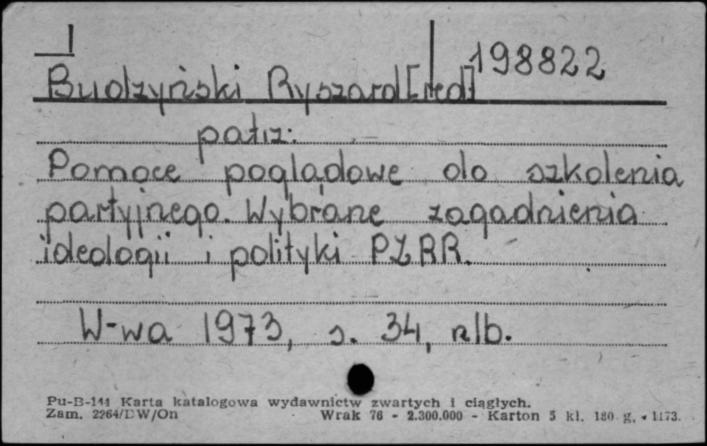 198822
Budzyński Ryszard [red]
patrz:
Pomoce poglądowe do szkolenia
partyjnego. Wybrane zagadnienia
ideologii i polityki PZPR.
W-wa 1973, s. 34, nlb.
Pu-B-141 Karta katalogowa wydawnictw zwartych i ciągłych.
Zam. 2264/DW/On Wrak 76 - 2.300.000 - Karton 5 kl. 180 g. - 1173.